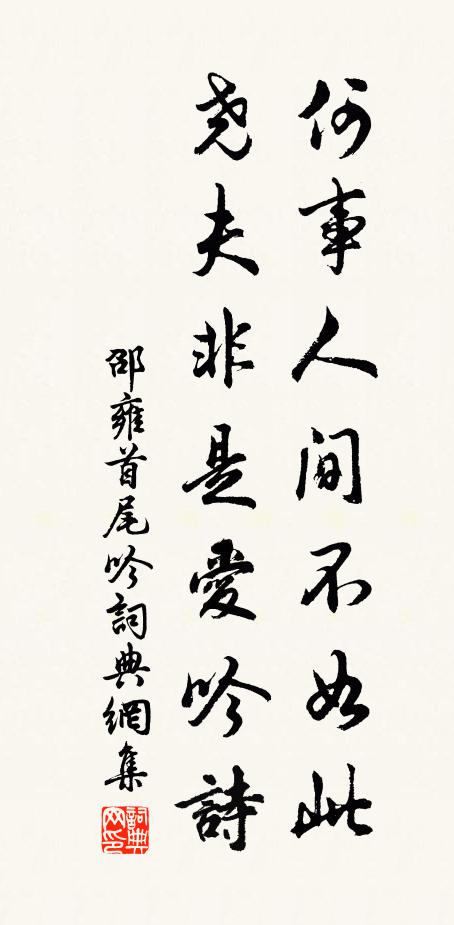 何事人間不如此
堯夫非是愛吟詩
邵雍首尾吟詞典網集
詞典網印